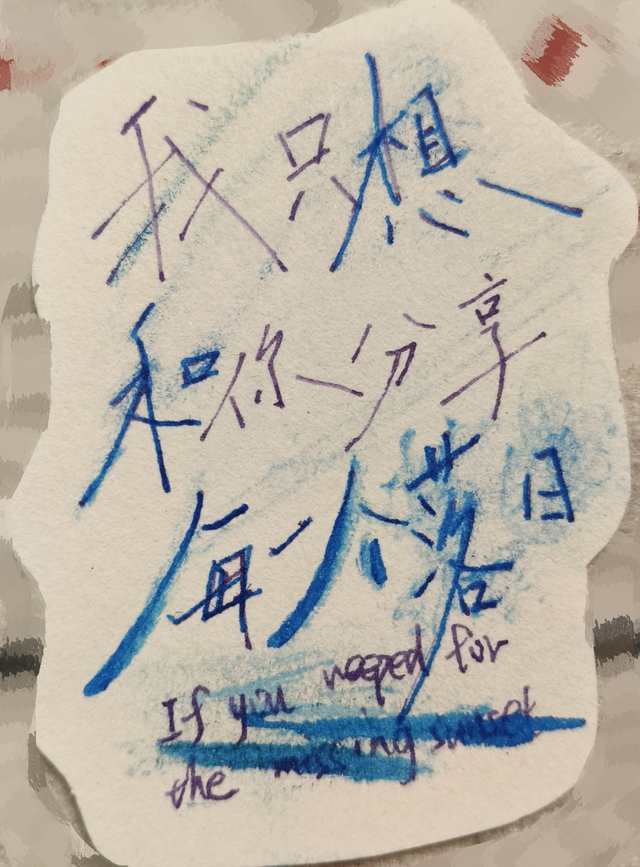 我只想
和你分享
每一个落日
If you weeped for
the missing sunset